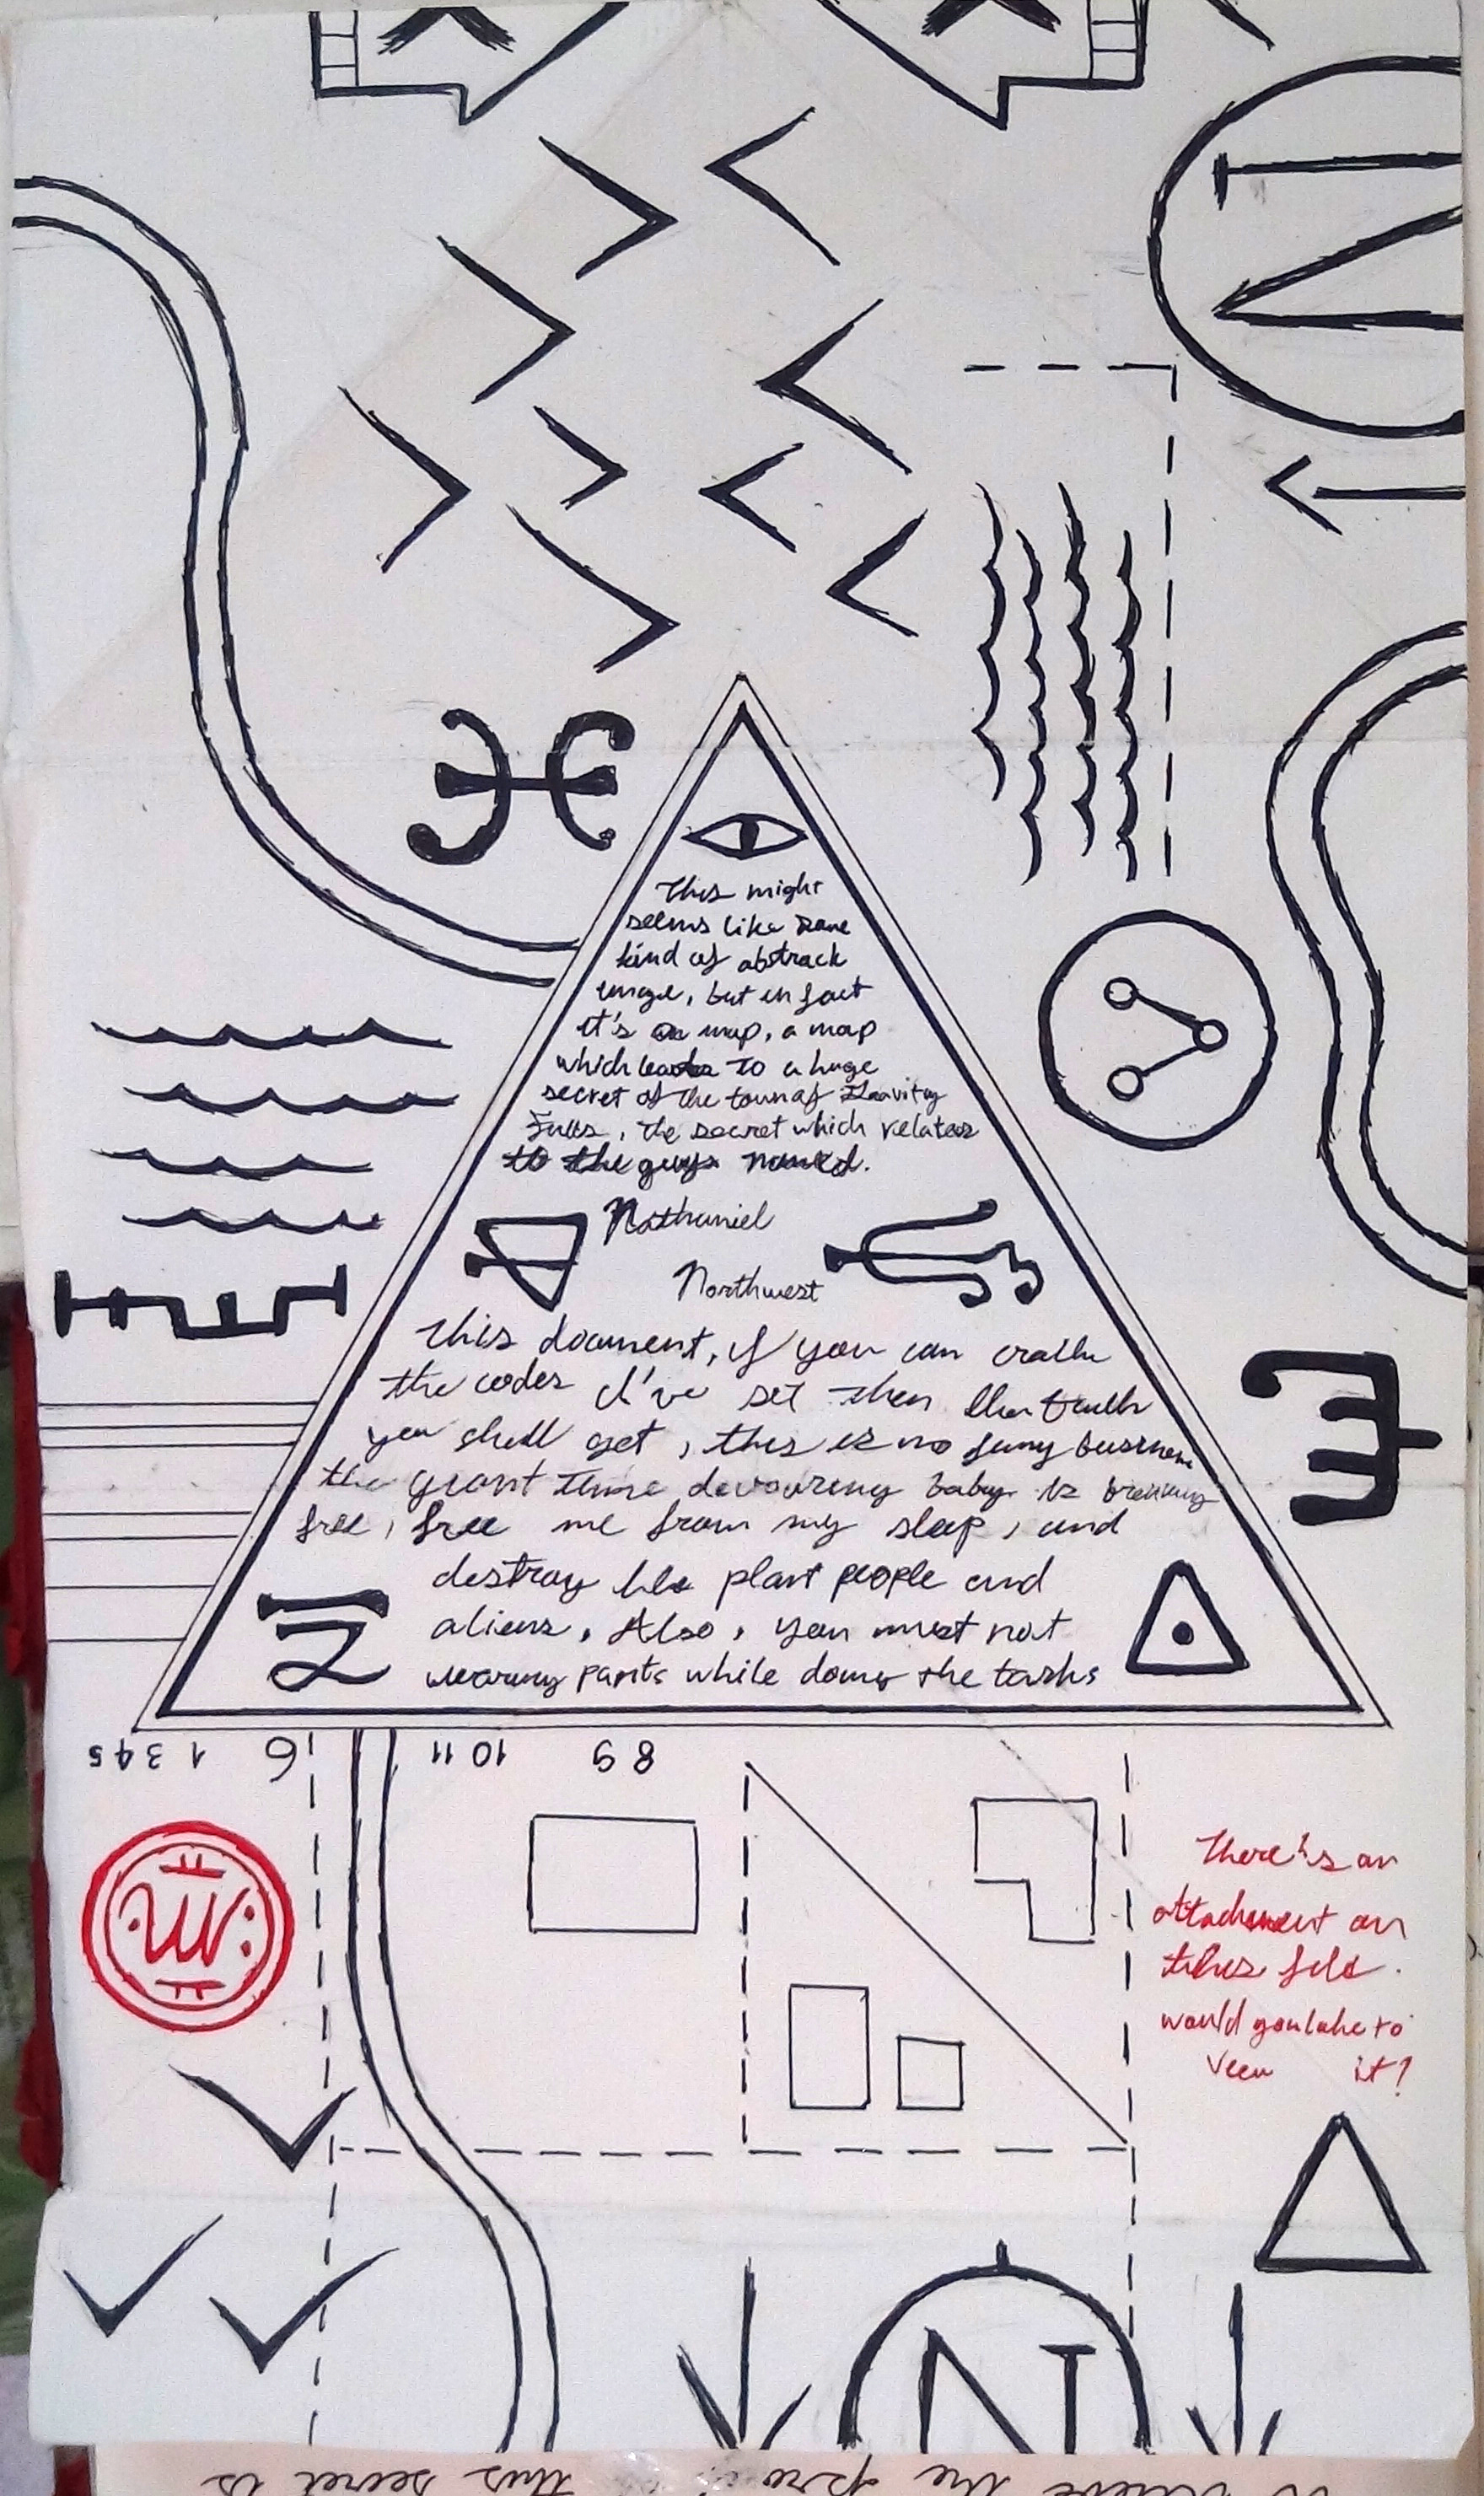 This might
seems like some
kind of abstrack
image, but in fact
it's a map, a map
which leads to a huge
secret of the town of Gravity
Falls, the secret which relates
to the guys named.
Nathaniel
Northwest
This document, if you can crack
the codes I've set then the truth
you shall get, this is no funy business
the giant time devouring baby is breaking
free, free me from my sleep, and
destroy the plant people and
aliens. Also, you must not
wearing pants while doing the tasks
1 3 4 5
6
10 11
8 9
There's an
attachment on
this fold.
would you like to
veew it?
N
this secret is